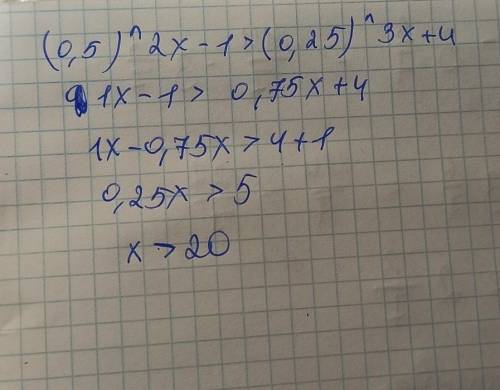 (0,5)^2x-1>(0,25)^3x+4
1x-1> 0,75x+4
1x-0,75x>4+1
0,25x>5
x>20